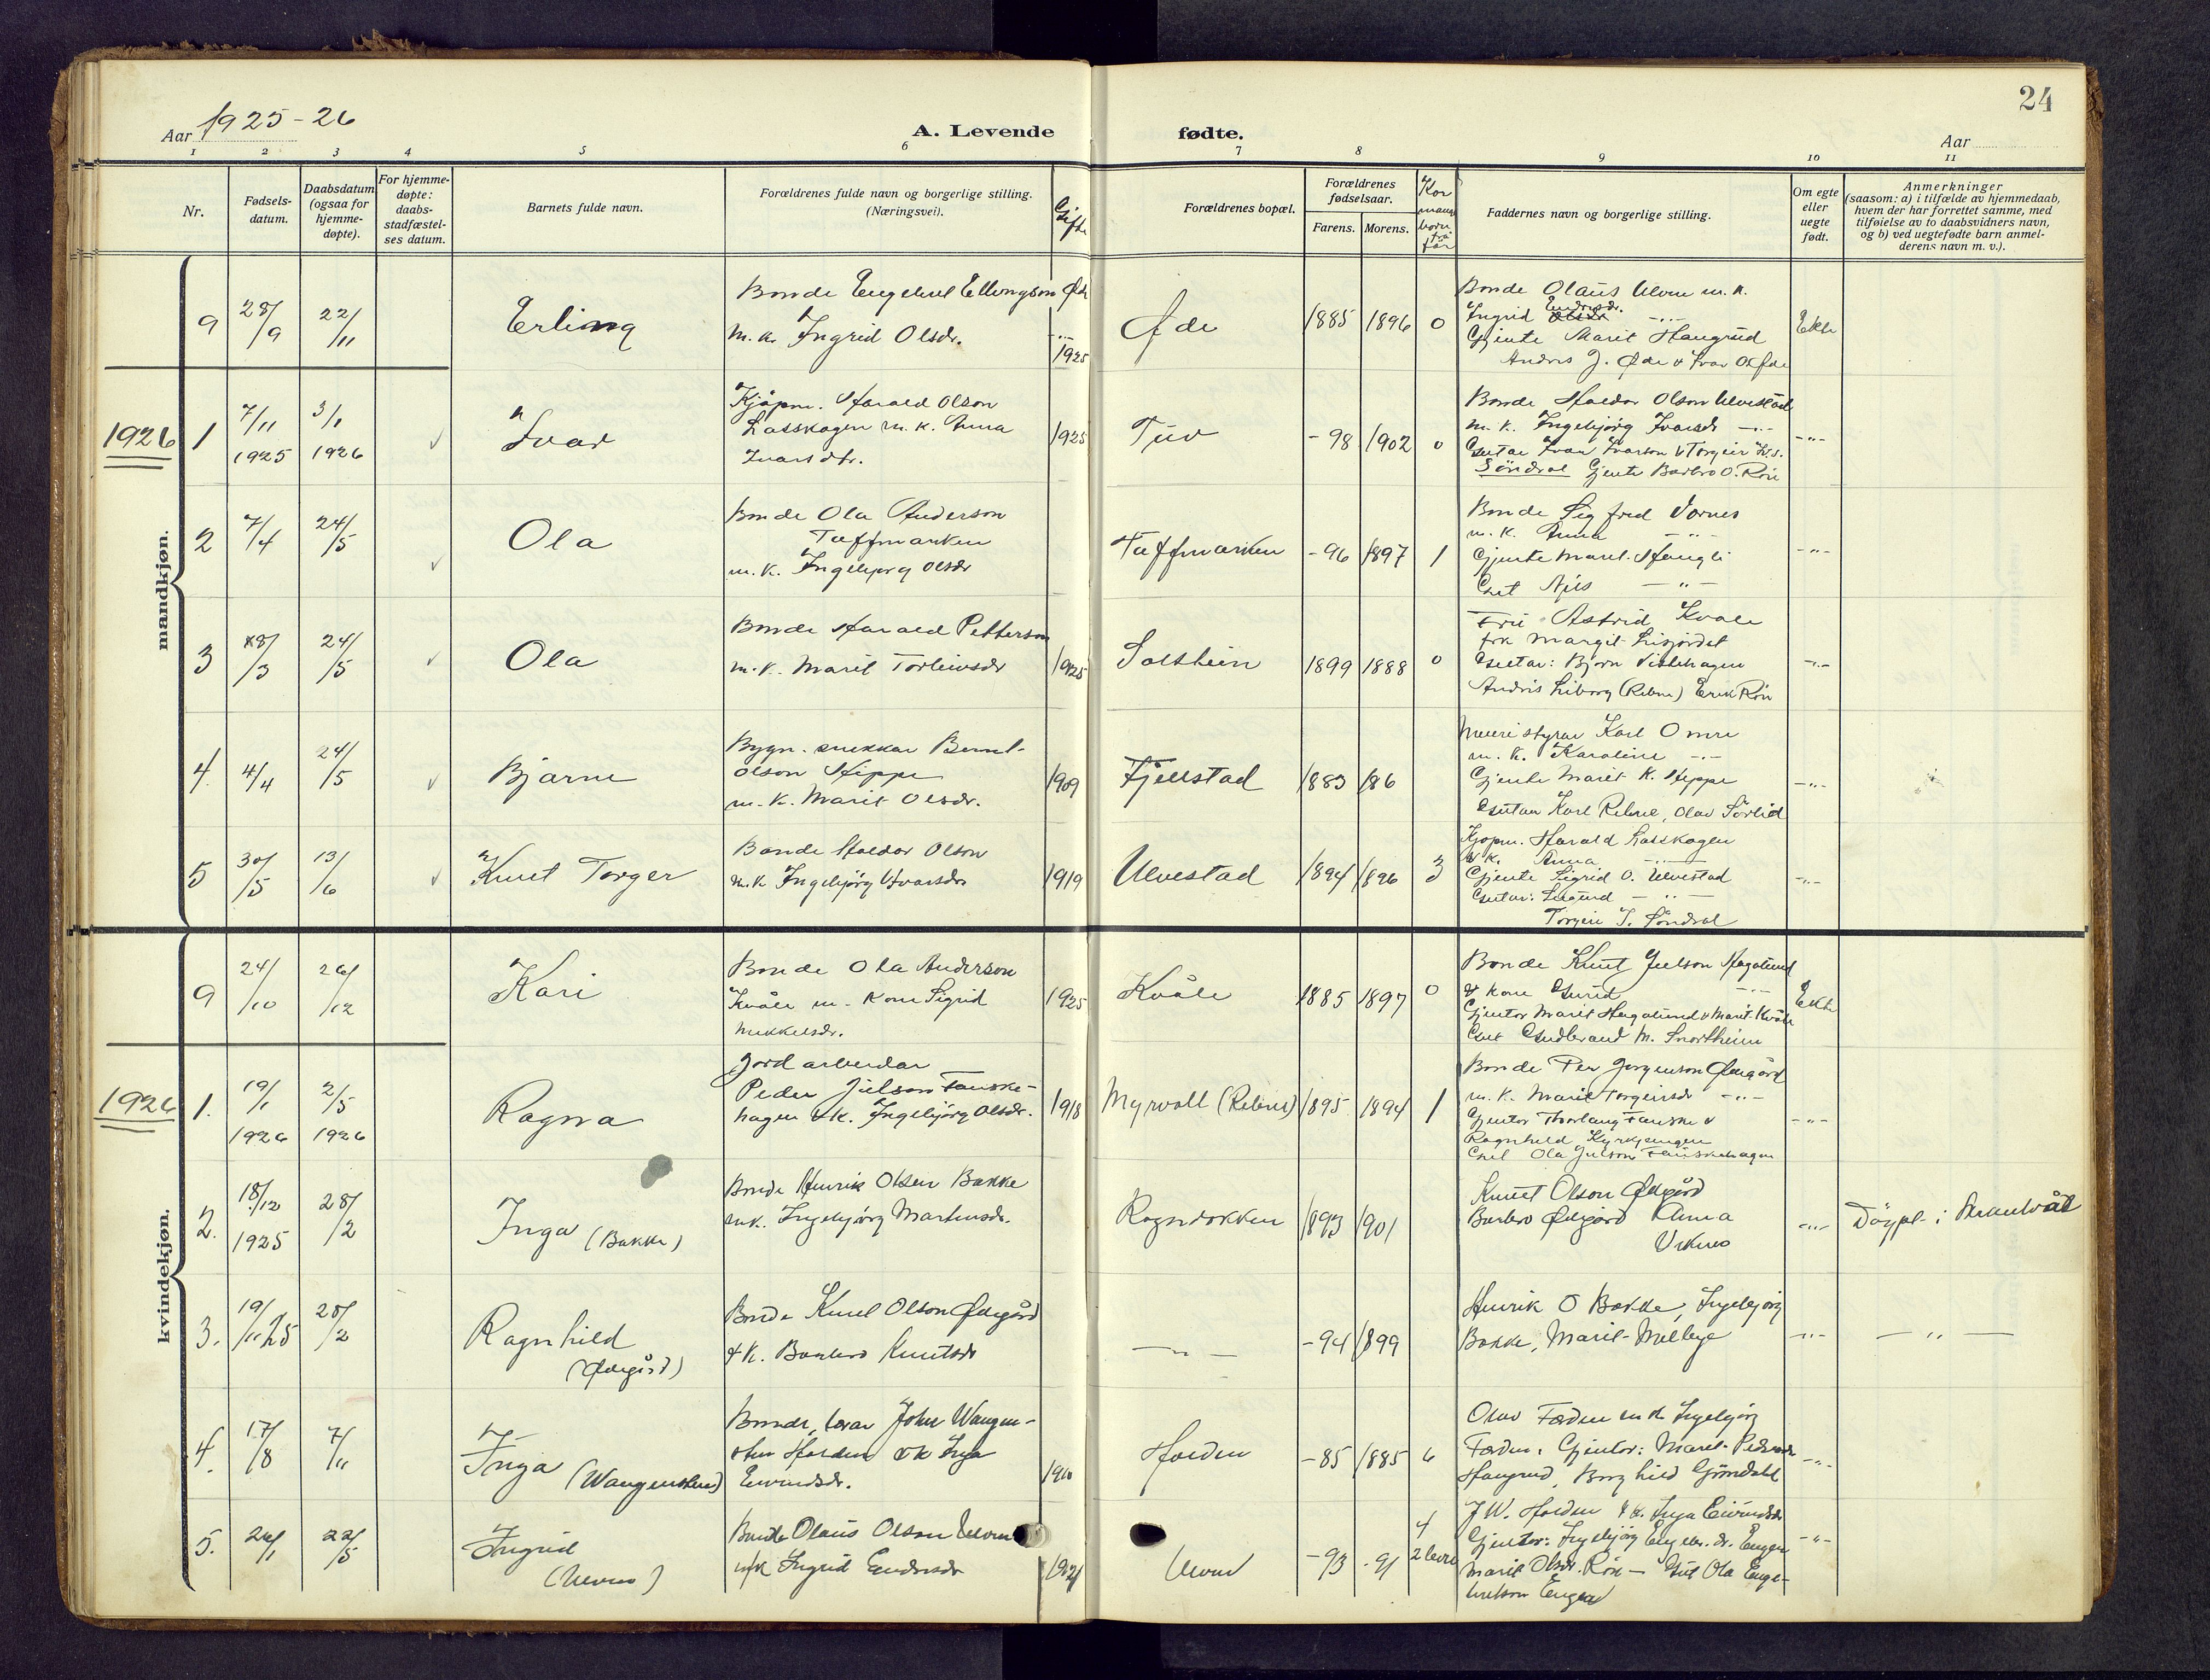 24
Aar 1925-26
A. Levende fødte.
Aar
1 2 3 4 5 6 7 8 9 10 11
Nr.
Fødsels-
datum.
Daabsdatum
(ogsaa for
hjemme-
døpte).
For hjemme-
døpte:
daabs-
stadfæstel-
ses datum.
Barnets fulde navn.
Forældrenes fulde navn og borgerlige stilling.
(Næringsvei).
Gifte
Forældrenes bopæl.
Forældrenes
fødselsaar.
Farens. Morens.
Kor
mange
born
frå
før
Faddernes navn og borgerlige stilling.
Om egte
eller
uegte
født.
Anmerkninger
(saasom: a) i tilfælde av hjemmedaab,
hvem der har forrettet samme, med
tilføielse av to daabsvidners navn,
og b) ved uegtefødte barn anmel-
derens navn m. v.).
mandkjøn.
9 28/9 22/11 Erling
Bonde Engebret Ellingson Øde
m. k. Ingrid Olsdr.
1925
Øde 1885 1896 0
Bonde Olaus Ulven m. k.
Ingrid Endresdr. -"-
Gjente Marit Haugrud
Andris J. Øde & Ivar O. Øde
Ekte
1926
1 7/11 1925 3/1 1926 Ivar
Kjøpm. Harald Olson
Lasskogen m. k. Anna
Ivarsdtr.
1925
Tuv -98 1902 0
Bonde Haldor Olson Ulvestad
m. k. Ingebjörg Ivarsdr -"-
Gutar Ivar Ivarson & Torgeir
Söndrol Gjente Barbro O. Rön
-"-
2 7/4 24/5 Ola
Bonde Ola Anderson
Tuffmarken
m. k. Ingebjørg Olsdr
Tuffmarken -96 1897 1
Bonde Sigfred
m. k. Anna -"-
Gjente Marit Haugli
Gut Nils -"-
-"-
3 8/3 24/5 Ola
Bonde Harald Petterson
m. k. Marit Torleivsdr
1925
Solheim 1899 1888 0
Fru Astrid Kvale
frk Margit Lisjordet
Gutar: Björn Vistehagen
Andris Liborg (Rebne) Erik Rön
-"-
4. 4/4 24/5 Bjarne
Bygn. snekkar Bernt
Olson Hippe
m. k. Marit Olsdr.
1909
Fjellstad 1883 86
Meieristyrar Karl Omre
m. k. Karoline -"-
Gjente Marit K. Hippe
Gutar Karl Rebne, Olav Sörlid
-"-
5 30/5 13/6 Knut Torger
Bonde Haldor Olson
m. k. Ingebjörg Ivarsdr
1919
Ulvestad 1894 1896 3
Kjøpm. Harald Lasskogen
& k. Anna -"-
Gjente Sigrid O. Ulvestad
Gutar: Sigurd -"-
Torgeir I. Söndrol
-"-
kvindekjøn.
9 24/10 26/12 Kari
Bonde Ola Anderson
Kvåle m. kone Sigrid
Mikkelsdr.
1925
Kvåle 1885 1897 0
Bonde Knut Julson Hagalund
& kone Gurid -"-
Gjentor Marit Hagalund & Marit Kvåle
Gut Gudbrand M. Snortheim
Ekte
1926
1. 19/1 1926 2/5 1926 Ragna
Jordarbeidar
Peder Julson Fauske-
hagen & k. Ingebjörg Olsdr.
1918
Myrvoll (Rebne) 1895 1894 1
Bonde Per Jørgenson Ødegård
m. k. Marit Torgeirsdr -"-
Gjentor Thorlaug Fauske &
Ragnhild Kyrkjeengen
Gut Ola Julson Fauskehagen
-"-
2. 18/12 1925 28/2 Inga (Bakke)
Bonde Henrik Olsen Bakke
m k. Ingebjörg Martinsdr.
Rogndokken 1893 1901
Knut Olson Ødegård
Barbro Ødegård Anna
-"-
Döypt i
3. 19/11 25 28/2 Ragnhild
(Ødegård)
Bonde Knut Olson Ødegård
& k. Barbro Knutsdr
-"- -94 1899
Henrik O Bakke, Ingebjörg
Bakke, Marit Melbye
-"- -"-
4. 17/8 7/11 Inga (Wangensteen)
Bonde, lærar John Wangen-
steen Hovden & k Inga
Eivindsdr.
1910
Hovden -85 1885 6
Olav Færden m k Ingebjörg
Færden. Gjentor: Marit Pedersdr
Haugrud, Borghild Gröndahl
-"-
5. 24/1 22/5 Ingrid
(Ulven)
Bonde Olaus Olson Ulven
m/k Ingrid Endresdr
1921
Ulven -93 -91 4 2 levn
J. W. Hovden & k. Inga Eivindsdr.
Gjentor: Ingebjörg Engebr. dr. Engen
Marit Olsdr. Rön - Gut Ola Enge-
bretson Engen
-"-